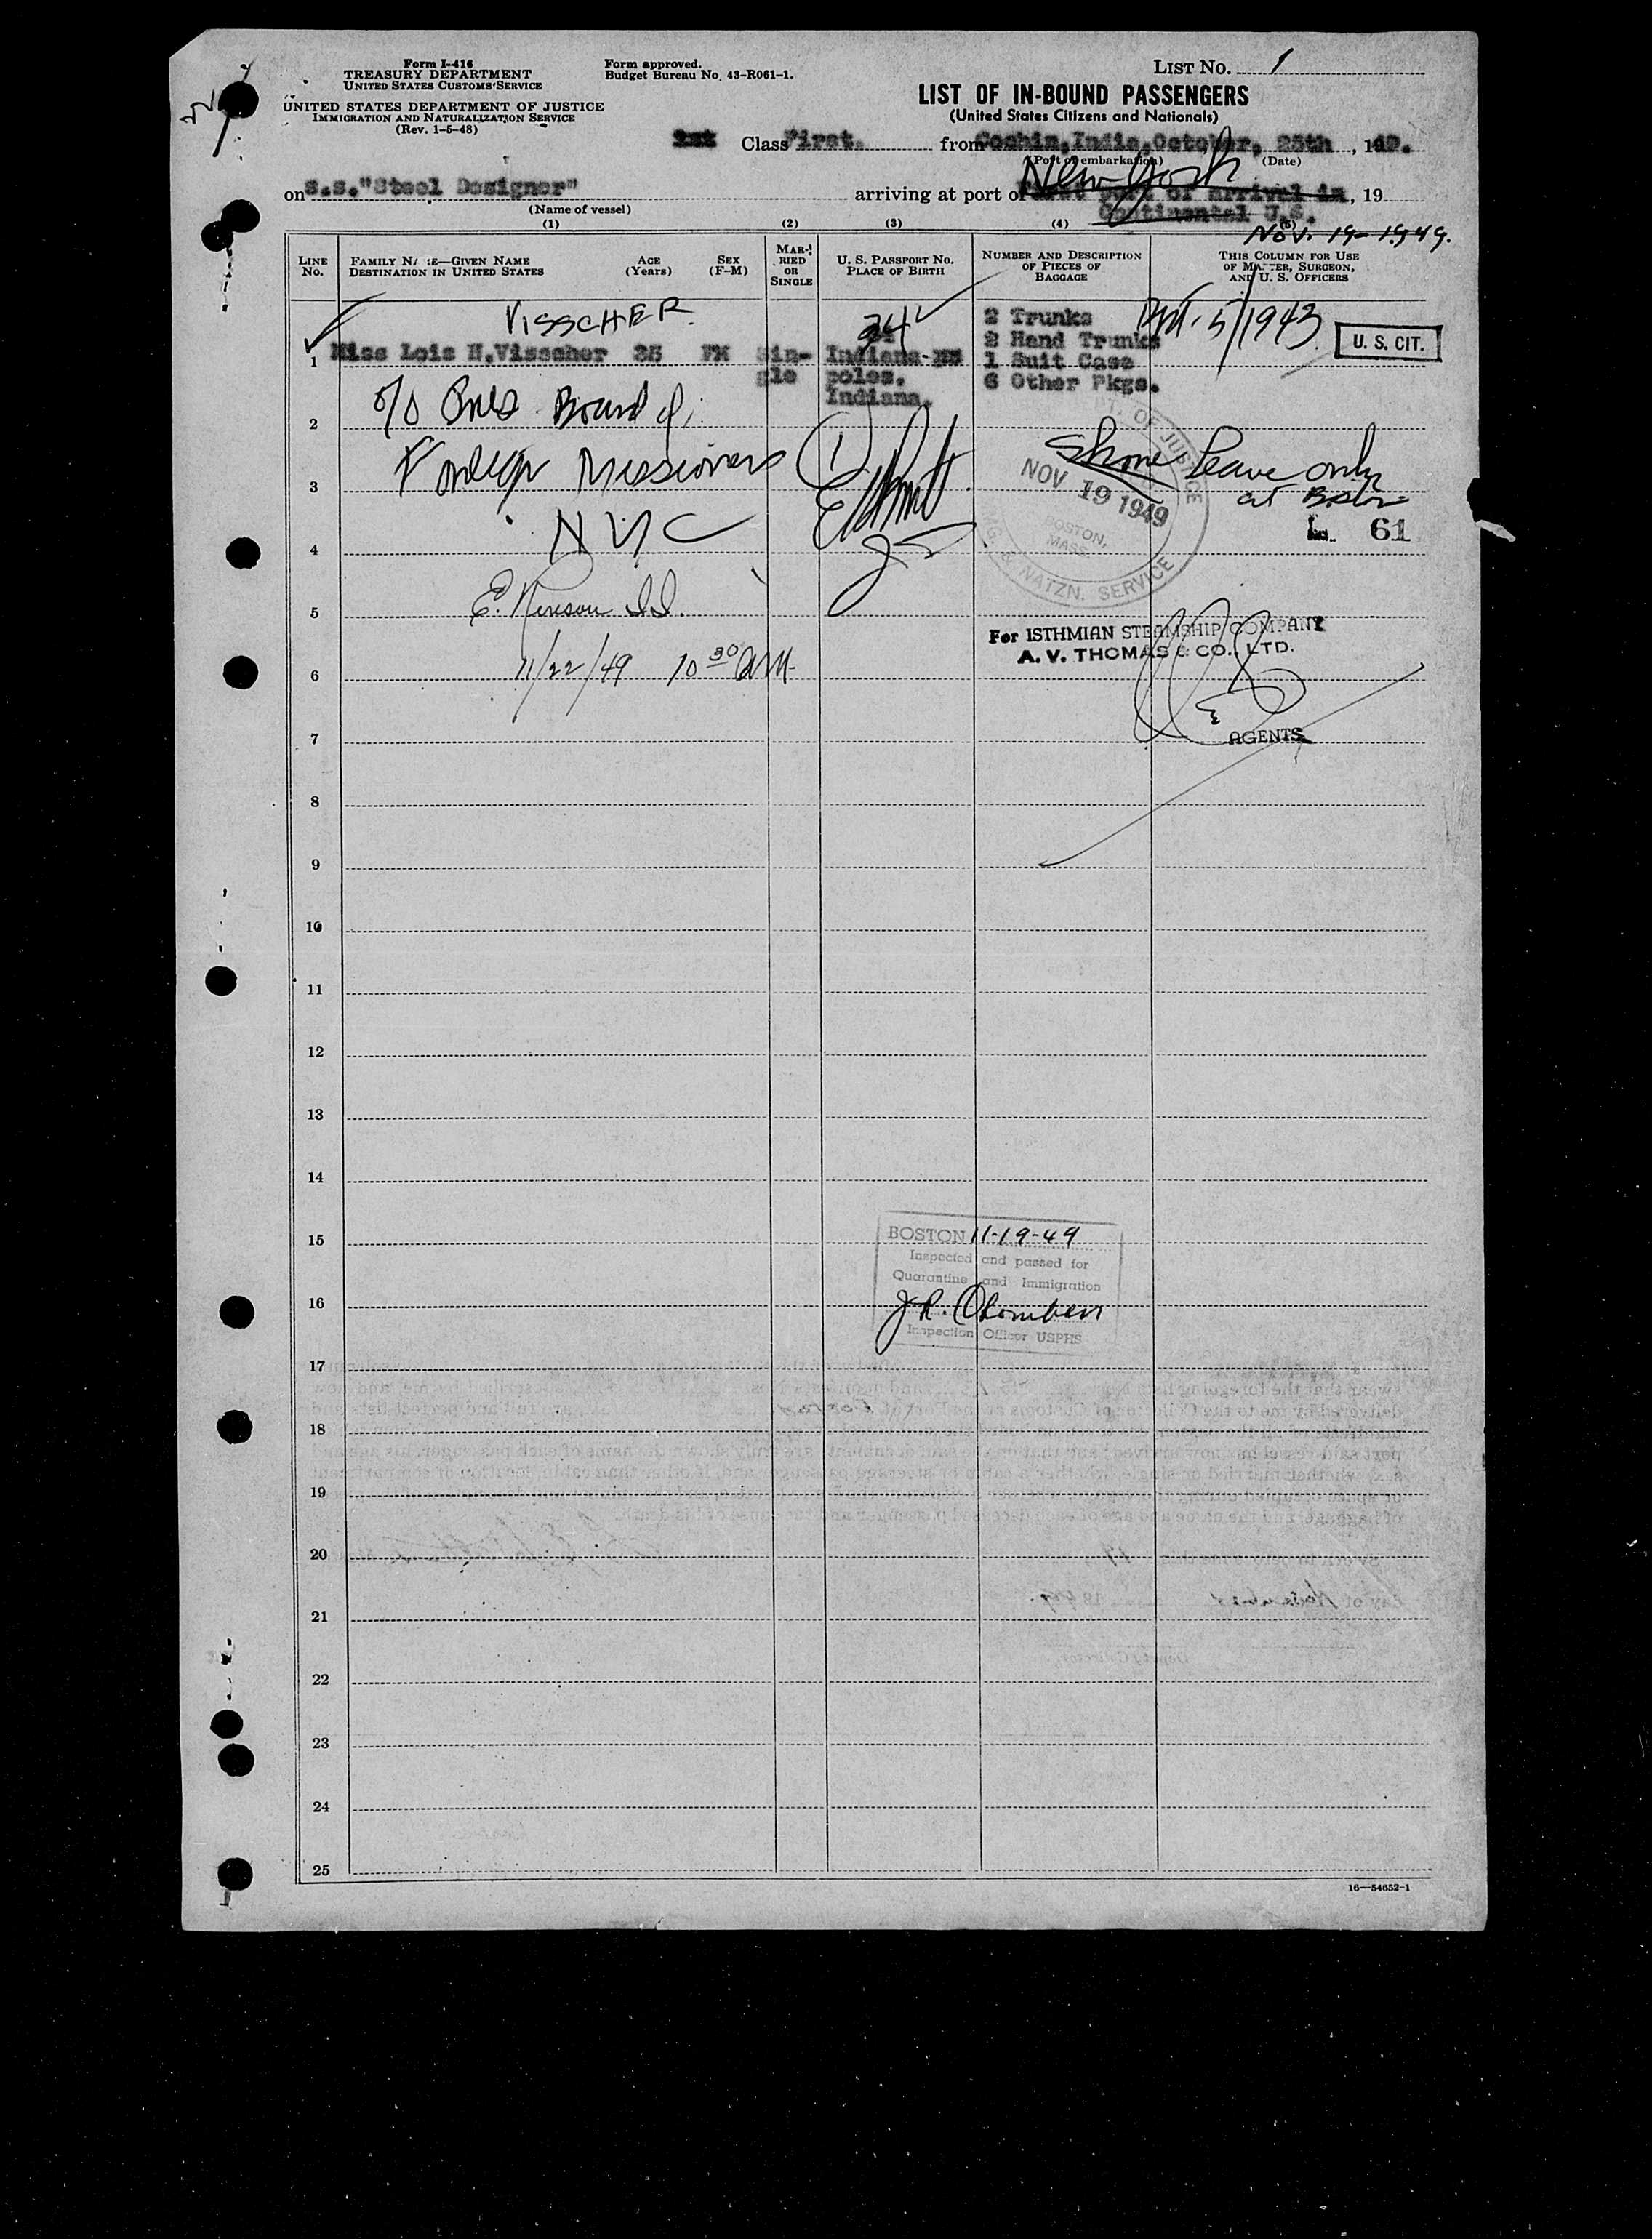 Form I-416
TREASURY DEPARTMENT
UNITED STATES CUSTOMS SERVICE
UNITED STATES DEPARTMENT OF JUSTICE
IMMIGRATION AND NATURALIZATION SERVICE
(Rev. 1-5-48)
Form approved.
Budget Bureau No. 43-R061-1.
LIST NO. 1
LIST OF IN-BOUND PASSENGERS
(United States Citizens and Nationals)
Class First. from Cochin, India, October, 25th, 19
(Port of embarkation) (Date)
New York
on s.s."Steel Designer" arriving at port of first port of arrival in, 19
(Name of vessel) Continental U.S.
Nov. 19-1949.
(1) (2) (3) (4) (5)
LINE No. FAMILY NAME—GIVEN NAME DESTINATION IN UNITED STATES AGE (Years) SEX (F-M) MARRIED OR SINGLE U. S. PASSPORT No. PLACE OF BIRTH NUMBER AND DESCRIPTION OF PIECES OF BAGGAGE THIS COLUMN FOR USE OF MASTER, SURGEON, AND U. S. OFFICERS
VISSCHER
34
2 Trunks
2 Hand Trunks
1943
U. S. CIT.
1 Miss Lois H.Visscher 35 FM Sin- Indiana- 1 Suit Case
gle polos. 6 Other Pkgs.
Indiana.
2 c/o Pres. Board of
3 Foreign Missions
Shore leave only
at Boston
NOV 19 1949
DEPT. OF JUSTICE
BOSTON, MASS.
& NATZN. SERVICE
61
4 NYC
5
For ISTHMIAN STEAMSHIP COMPANY
A. V. THOMAS & CO., LTD.
6 11/22/49 10 30 AM
AGENTS
7
8
9
10
11
12
13
14
15
BOSTON 11-19-49
Inspected and passed for
Quarantine and Immigration
16
Inspection Officer USPHS
17
18
19
20
21
22
23
24
25
16—54652-1